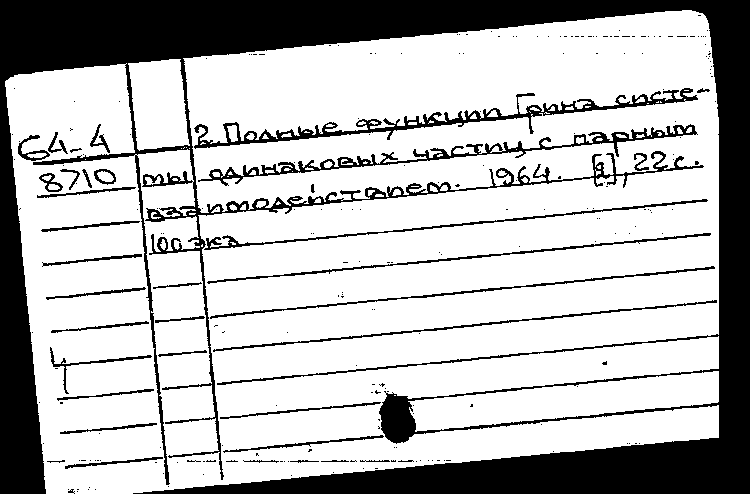 2. Полные функции Грина систе-
64-4
8710 мы одинаковых частиц с парным
взаимодействием. 1964. [2], 22 с.
100 экз.